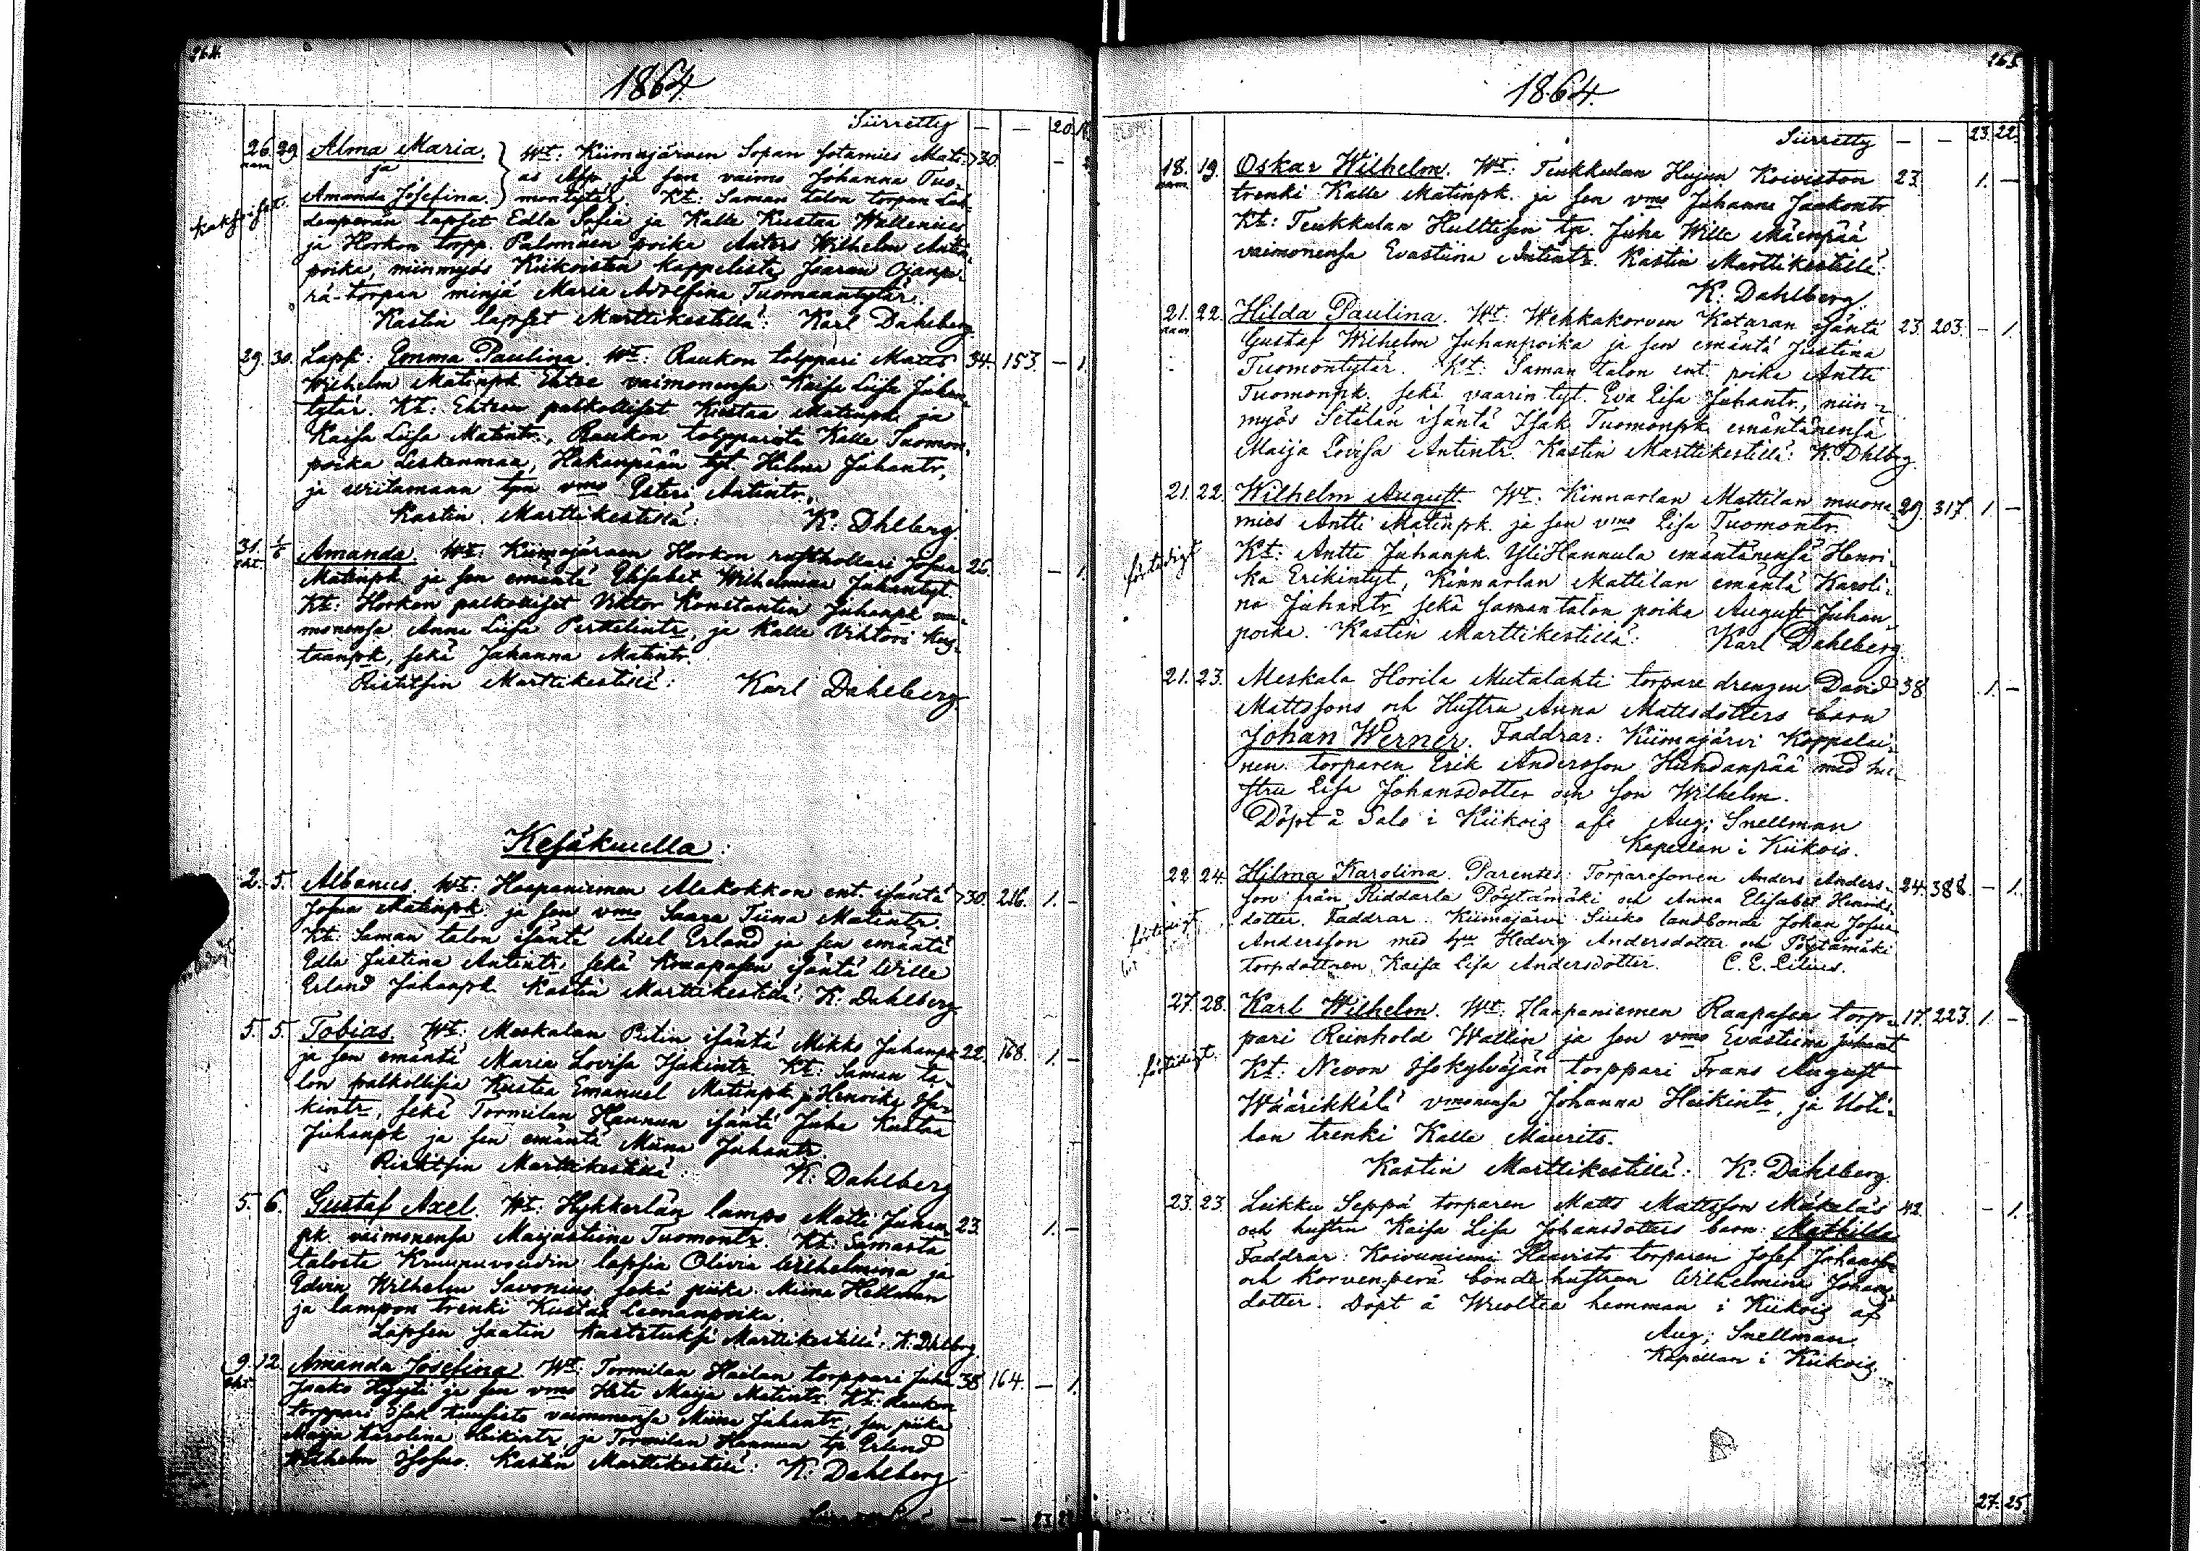 264.
1864.
Siirretty — — 20.
26. 29. Alma Maria. Wt: Kiimajärven Sopan sotamies Mati- >30. —
nam. ja as App ja sen vaimo Johanna Tuo-
Amanda Josefina. montytär. Kt: Saman talon torpan
kaksoiset. lapset Edla Sofia ja Kalle Kustaa Wallenius
ja Horkon torpp. Palomäen poika Anters Wilhelm Antin
poika, niinmyös Kiikoisten kappelista Jaaran Ojanpe-
rä-torpan minjä Maria Adolfina Tuomaantytär.
Kastin lapset Marttikestillä: Karl Dahlberg.
29. 30. Lapsi: Emma Paulina. Wt: Raukon tolppari Matts 34. 153. — 1.
Wilhelm Matinpk. Ehtee vaimonensa Kaisa Liisa Juhan-
tytär. Kt: Ehteen palkolliset Kustaa Matinpk. ja
Kaisa Liisa Matintr., Raukon tolpparista Kalle Tuomon-
poika Leskenmaa, Hakanpään tyt. Hilma Juhantr,
ja Uriitamann tpn vmo Esteri Antintr.
Kastin Marttikestillä: K. Dhlberg.
31. 1/6 Amanda. Wt: Kiimajärven Horkon rusthollari Josua 26. — 1.
Matinpk. ja sen emäntä Elisabet Wilhelmina Juhantyt.
Kt: Horkon palkolliset Viktor Konstantin Juhanpk vai-
monensa Anna Liisa Perttelintr, ja Kalle Viktori Kus-
taanpk, sekä Johanna Matintr.
Ristitsin Marttikestillä: Karl Dahlberg.
Kesäkuulla:
2. 5. Albanus. Wt: Haapaniemen Alakokkon ent. isäntä >30. 216. 1. —
Josua Matinpk. ja sen vmo Saara Tiina Matintr.
Kt: Saman talon isäntä Axel Erland ja sen emäntä
Edla Justina Antintr, sekä Kraapasen isäntä Wille
Erland Juhanpk. Kastin Marttikestillä: K. Dahlberg
5. 5. Tobias. Wt: Meskalan Pitin isäntä Mikko Juhanpk 22. 168. 1. —
ja sen emäntä Maria Lovisa Isakintr. Kt: Saman ta-
lon palkollisia Kustaa Emanuel Matinpk. ja Henrika Isa-
kintr, sekä Tormilan Hannun isäntä Juha Kustaa
Juhanpk ja sen emäntä Miina Juhantr.
Ristitsin Marttikestillä: K. Dahlberg
5. 6. Gustaf Axel. Wt: Hykkerlän lampo Matti Juhan- 23. 1. —
pk. vaimonensa Maijastiina Tuomontr. Kt: Samasta
talosta Kruunuvoudin lapsia Olivia Wilhelmina ja
Edvin Wilhelm Savonius, sekä piika Miina Hellman
ja lampon trenki Kustaa Leenanpoika.
Lapsen saatin kastetuksi Marttikestillä: K. Dhlberg.
9. 12. Amanda Josefina. Wt: Tormilan Hailan torppari Juha 38 164. — 1.
Jaako Hyyti ja sen vmo Heta Maija Matintr. Kt: Raukon
torppari Isak Kuusisto vaimonensa Miina Juhantr, sen piika
Maija Karolina Heikintr, ja Tormilan Hannun tp. Erland
Wilhelm Isosuo. Kastin Marttikestillä: K. Dahlberg
265.
1864.
Siirretty — — 23. 22.
18. 19. Oskar Wilhelm. Wt: Teukkulan Hujun Koiviston 23. 1. —
nam. trenki Kalle Matinpk. ja sen vmo Johanna Jaakontr
Kt: Teukkulan Hulttisen tp. Juha Wille Mäenpää
vaimonensa Evastiina Antintr. Kastin Marttikestillä:
K. Dahlberg.
21. 22. Hilda Paulina. Wt: Wehkakorven Kataran isäntä 23. 203. — 1.
nam. Gustaf Wilhelm Juhanpoika ja sen emäntä Justina
Tuomontytär. Kt: Saman talon ent. poika Antti
Tuomonpk. sekä vaarin tyt. Eva Lisa Juhantr., niin-
myös Setälän isäntä Isak Tuomonpk. emäntänensä
Maija Lovisa Antintr. Kastin Marttikestillä: K. Dhlbrg.
21. 22. Wilhelm August. Wt: Kinnarlan Mattilan muona- 29. 317. 1. —
mies Antti Matinpk. ja sen vmo Lisa Tuomontr.
Kt: Antti Juhanpk. YliHannula emäntänensä Henri-
ka Erikintyt, Kinnarlan Mattilan emäntä Karoli-
na Juhantr, sekä saman talon poika August Juhan-
poika. Kastin Marttikestillä: Karl Dahlberg.
21. 23. Meskala Horila Mutalahti torpare drengen David 38. 1. —
Mattssons och Hustru Anna Mattsdotters barn
Johan Werner. Faddrar: Kiimajärvi Koppelai-
nen torparen Erik Andersson Huhdanpää med hu-
stru Lisa Johansdotter och son Wilhelm.
Döpt å Salo i Kiikois af Aug: Snellman
Kapellan i Kiikois.
22 24. Hilma Karolina. Parentes: Torparesonen Anders Anders- 24. 388. — 1.
son från Riddarla Pöytämäki och Anna Elisabet Henriks-
dotter. Faddrar Kiimajärvi Siuko landbonde Johan Josua
Andersson med hu Hedvig Andersdotter och Pöytämäki
torpdottren Kaisa Lisa Andersdotter. C. E. Cilius.
27. 28. Karl Wilhelm. Wt: Haapaniemen Raapasen torp- 17. 223. 1. —
pari Reinhold Wallin ja sen vmo Evastiina Juhant
Kt: Nevon Isokylväjän torppari Frans August
Wäärikkälä vmonensa Johanna Heikintr, ja Uoti-
lan trenki Kalle Maurits.
Kastin Marttikestillä: K. Dahlberg.
23. 23. Leikku Seppä torparen Matts Mattsson Mäkeläs 42. — 1.
och hustru Kaisa Lisa Johansdotters barn: Mathilda
Faddrar: Koivuniemi Haavisto torparen Josef Johansson
och Korvenperä bondehustrun Wilhelmina Johans
dotter. Döpt å Wreoltta hemman i Kiikois af
Aug: Snellman
Kapellan i Kiikois.
27. 25.